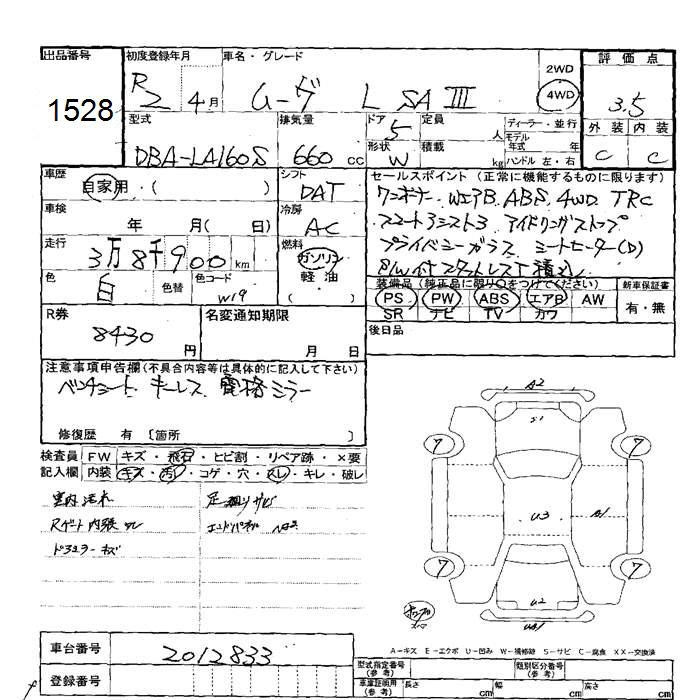 出品番号
1528
初度登録年月
R2 4月
車名・グレード
ムーヴ L SAIII
2WD
4WD
評価点
3.5
外装 内装
C C
型式
DBA-LA160S
排気量
660 cc
ドア 5
形状 W
定員 人
積載 kg
ディーラー・並行
モデル
年式 年
ハンドル 左・右
車歴
自家用・( )
シフト
DAT
車検
年 月( 日)
冷房
AC
走行
3万8千900km
燃料
ガソリン
軽・油
( )
色
白
色替
色コード
W19
セールスポイント(正常に機能するものに限ります)
ワンオーナー. WエアB. ABS. 4WD. TRC
スマートアシスト3 アイドリングストップ
プライバシーガラス シートヒーター(D)
P/W付スタッドレスT積込
装備品(純正品に限り○をつけてください)
PS PW ABS エアB AW
SR ナビ TV カワ
新車保証書
有・無
後日品
R券
8430円
名変通知期限
月 日
注意事項申告欄(不具合内容等は具体的に記入して下さい)
ベンチシート. キーレス 電格ミラー
修復歴 有 〔箇所 〕
検査員 FW キズ・飛石・ヒビ割・リペア跡・×要
記入欄 内装 キズ・汚レ・コゲ・穴・スレ・キレ・破レ
Rゲート内張スレ
足廻りサビ
A2
S1
7
7
U3
A1
7
7
U2
A-キズ E-エクボ U-凹み W-補修跡 S-サビ C-腐食 XX-交換済
車台番号
2012833
登録番号
型式指定番号
(参考)
類別区分番号
(参考)
車庫証明用
(参考)
長さ cm
幅 cm
高さ cm